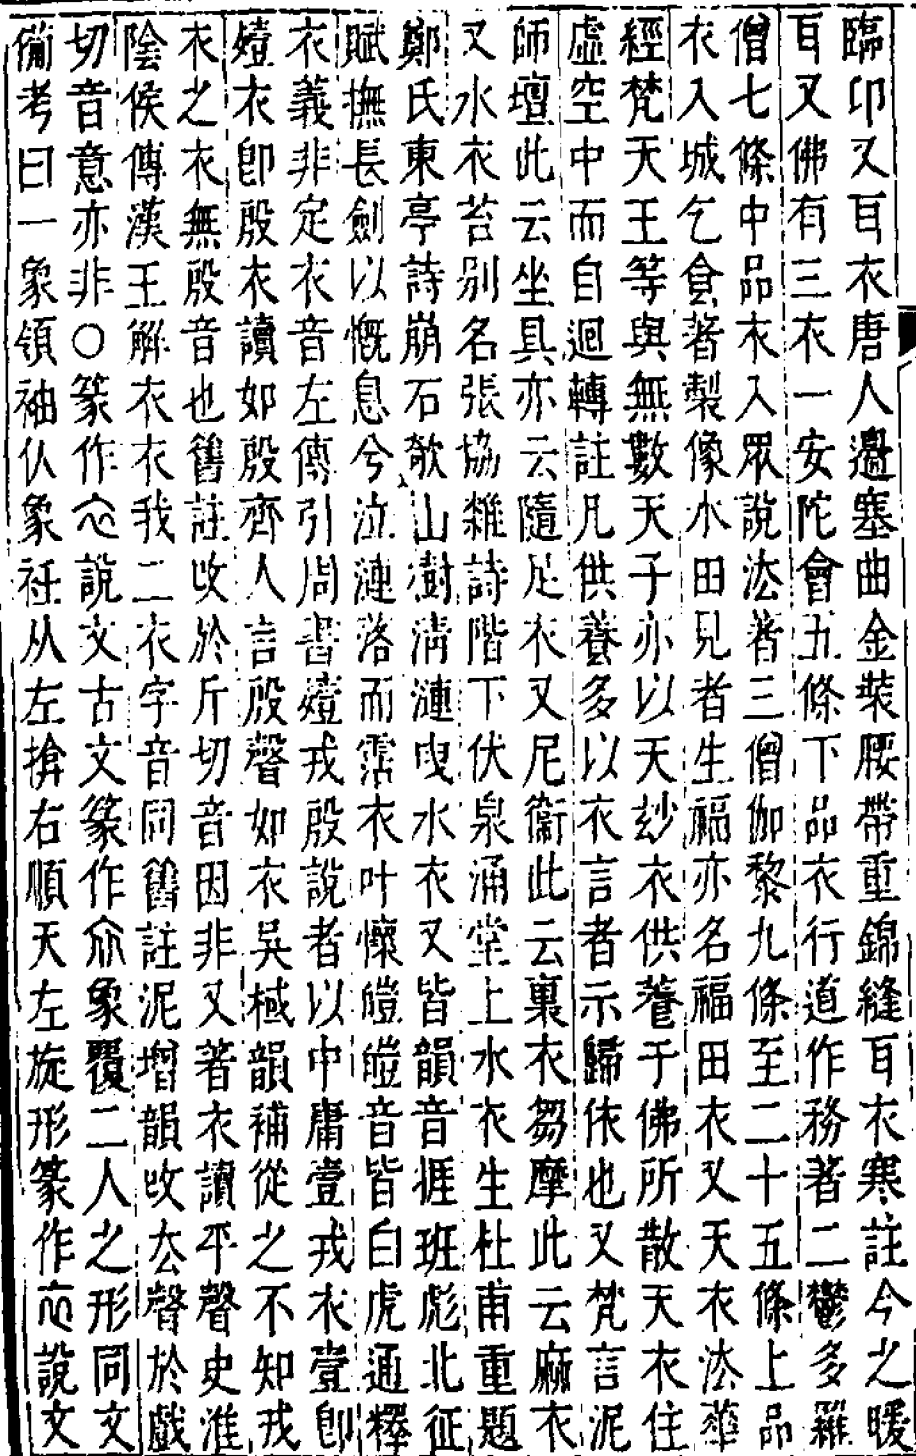 臨卭又耳衣唐人邉塞曲金裝腰帶重錦縫耳衣寒註今之暖
耳又佛有三衣一安陀會五條下品衣行道作務著二鬱多羅
僧七條中品衣入眾說法著三僧伽黎九條至二十五條上品
衣入城乞食著製像水田見者生福亦名福田衣又天衣法華
經梵天王等與無數天子亦以天玅衣供養于佛所散天衣住
虛空中而自迴轉註凡供養多以衣言者示歸依也又梵言泥
師壇此云坐具亦云隨足衣又尼衞此云裏衣芻摩此云麻衣
又水衣苔別名張協雜詩階下伏泉涌堂上水衣生杜甫重題
鄭氏東亭詩崩石欹山樹清漣曳水衣又皆韻音揩班彪北征
賦撫長劍以慨息兮泣漣落而霑衣叶懷皚皚音皆白虎通釋
衣義非定衣音左傳引周書殪戎殷說者以中庸壹戎衣壹卽
殪衣卽殷衣讀如殷齊人言殷聲如衣吳棫韻補從之不知戎
衣之衣無殷音也舊註收於斤切音因非又著衣讀平聲史淮
陰侯傳漢王解衣衣我二衣字音同舊註泥增韻收去聲於戲
切音意亦非○篆作𧘇說文古文篆作𧘇象覆二人之形同文
備考曰一象領袖仏象衽从左揜右順天左旋形篆作𧘇說文